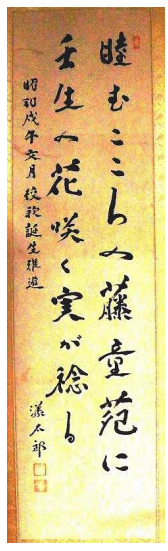 睦むこころの藤童苑に
壬生の花咲く実が稔る
昭和戊午文月 校歌誕生
漾太郎